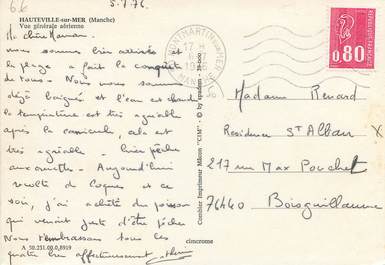 5.7.76.
HAUTEVILLE-sur-MER (Manche)
Vue générale aérienne
Ma chère Maman.
nous sommes bien arrivés et
la plage a fait la conquête
de tous. Nous nous sommes
déjà baignés et l'eau est chaude
la température est très agréable
après la canicule, cela est
très agréable - hier pêche
aux Aujourd'hui
récolte de Coques et ce
soir, j'ai acheté du poisson
qui venait juste d'être pêché
Nous t'embrassons tous les
quatre bien affectueusement
A 50.231.00.0.8919
cimcrome
Combier Imprimeur Mâcon "CIM"
17 H
6-7
1976
MANCHE
0,80
Madame Renard
Residence St Alban
217 rue Max Pouchet
76440 Boisguillaume